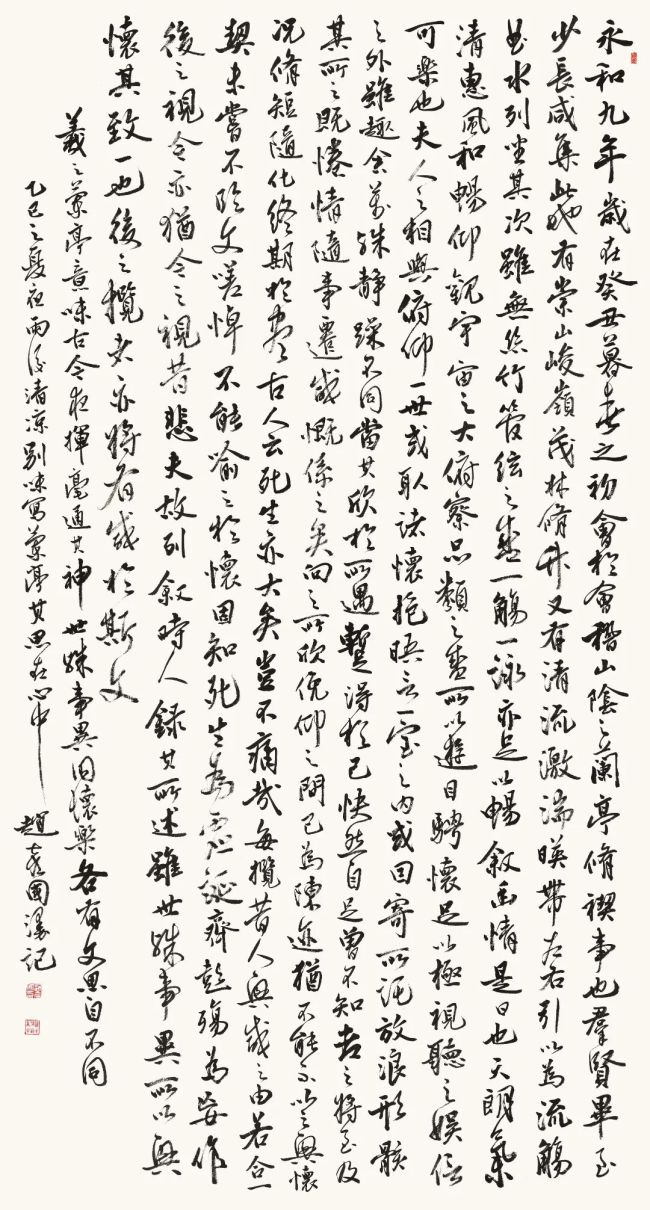 永和九年歲在癸丑暮春之初會於會稽山陰之蘭亭脩禊事也羣賢畢至
少長咸集此地有崇山峻嶺茂林脩竹又有清流激湍暎帶左右引以為流觴
曲水列坐其次雖無絲竹管絃之盛一觴一詠亦足以暢敘幽情是日也天朗氣
清惠風和暢仰觀宇宙之大俯察品類之盛所以遊目騁懷足以極視聽之娛信
可樂也夫人之相與俯仰一世或取諸懷抱晤言一室之內或因寄所託放浪形骸
之外雖趣舍萬殊靜躁不同當其欣於所遇暫得於己快然自足曾不知老之將至及
其所之既惓情隨事遷感慨係之矣向之所欣俛仰之間已為陳迹猶不能不以之興懷
況脩短隨化終期於盡古人云死生亦大矣豈不痛哉每攬昔人興感之由若合一
契未嘗不臨文嗟悼不能喻之於懷固知死生為虛誕齊彭殤為妄作
後之視今亦猶今之視昔悲夫故列敘時人錄其所述雖世殊事異所以興
懷其致一也後之攬者亦將有感於斯文
羲之蘭亭意味古今夜揮毫通其神世殊事異懷樂各有文思自不同
乙巳之夏夜雨後清涼別味寫蘭亭其思在心中趙國記